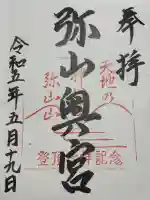 奉拝
弥山奥宮
令和五年五月十九日
天地乃
弥山山
登頂
記念